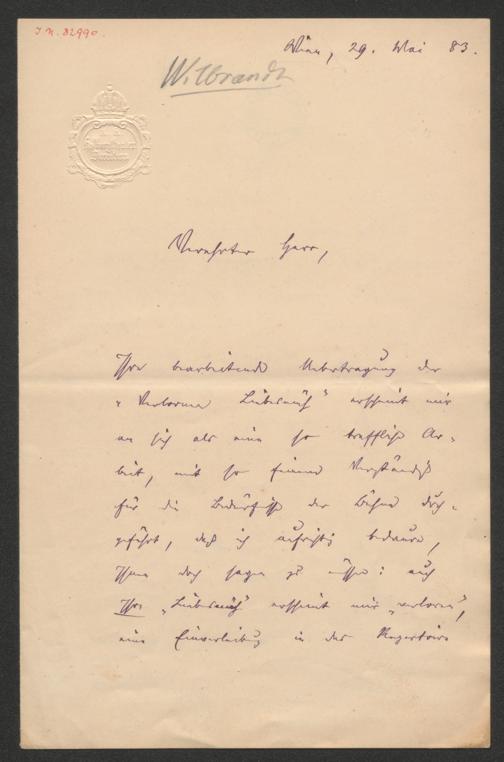 I.N. 82990.
Wien, 29. Mai 83.
Wilbrandt
Verehrter Herr,
Ihre bearbeitende Uebertragung der
"Verlornen Liebesmüh" erscheint mir
an sich als eine so treffliche Ar-
beit, mit so feinem Verständniß
für die Bedürfnisse der Bühne durch-
geführt, daß ich aufrichtig bedaure,
Ihnen doch sagen zu müssen: auch
Ihre "Liebesmüh" erscheint mir "verloren",
eine Einverleibung in das Repertoire